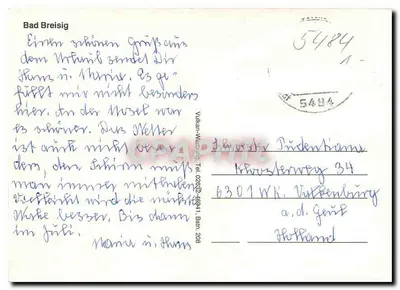 Bad Breisig
Einen schönen Gruß aus
dem Urlaub sendet Dir
Hans u. Maria. Es ge-
fällt mir nicht besonders
hier. An der Mosel war
es schöner. Das Wetter
ist auch nicht
den Schirm muß
man immer mithaben
Vielleicht wird die nächste
Woche besser. Bis dann
im Juli.
Maria u. Hans
5484
1-
5484
Pudentiana
Kloosterweg 34
6301 WK. Valkenburg
a.d. Geul
Holland